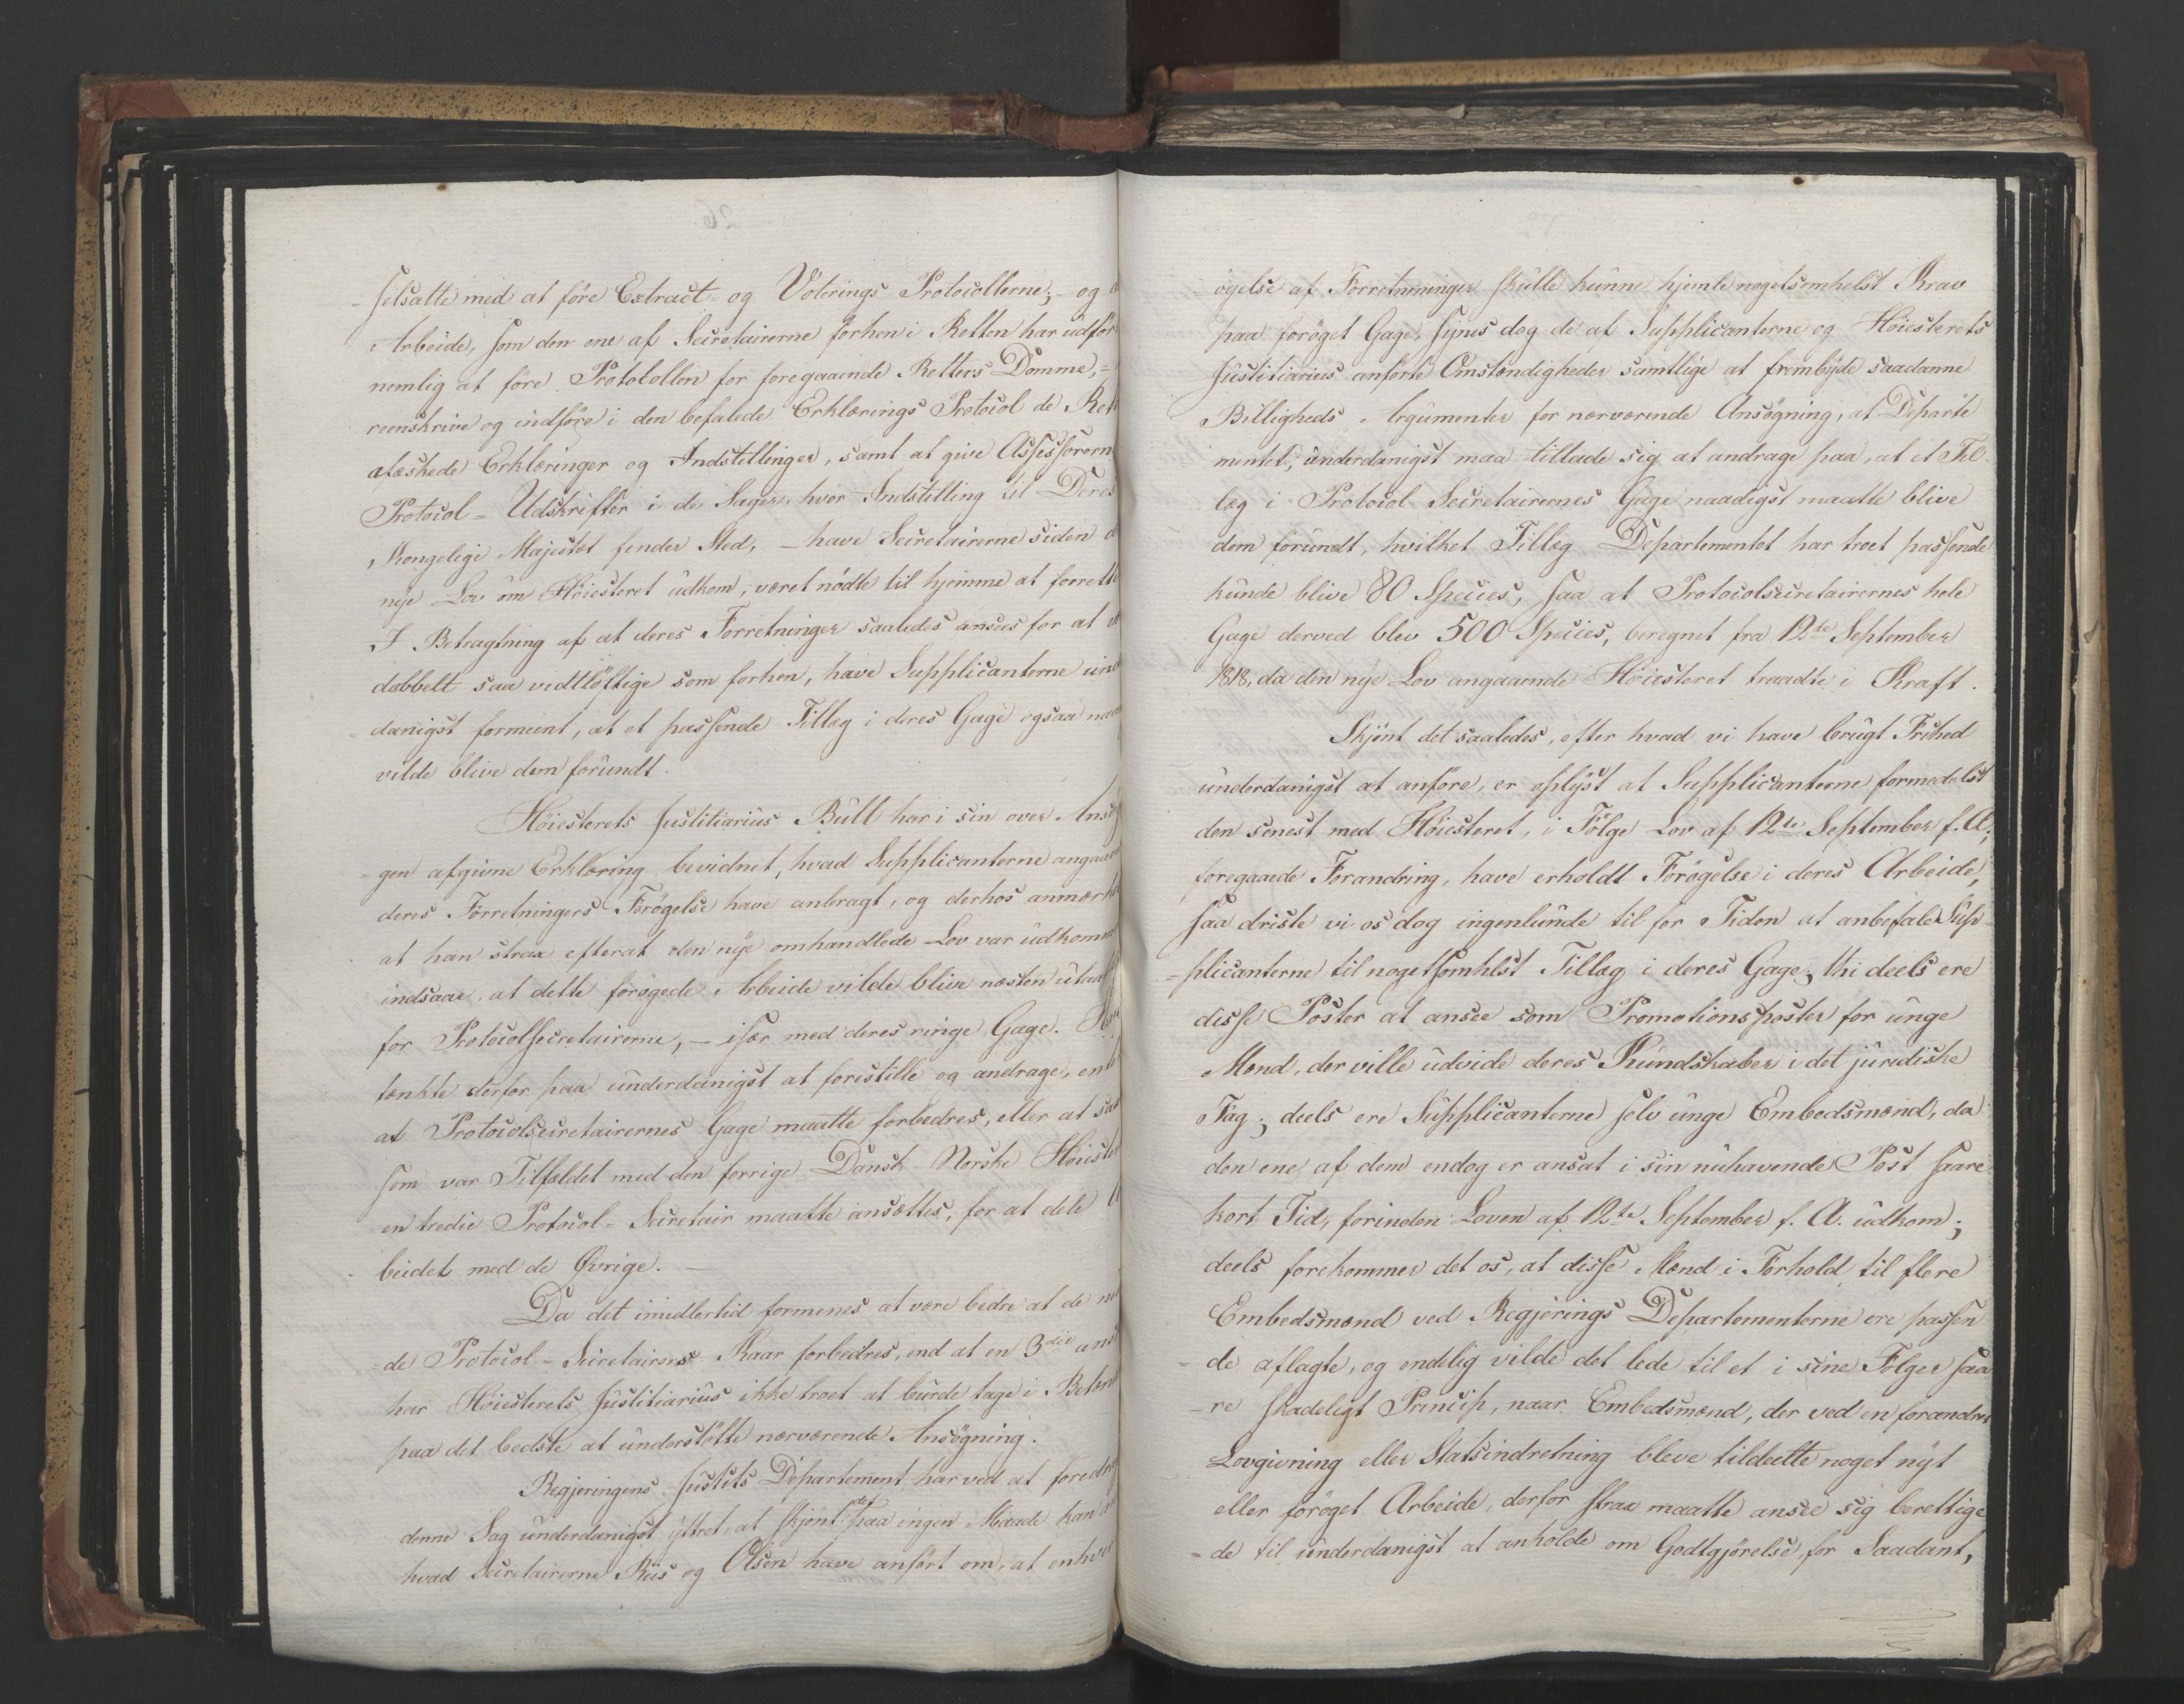 selsatte med at føre Extract- og Voterings-Protocollerne; - og
Arbeide, som den ene af Secretairerne forhen i Retten har udfør
nemlig at føre Protokollen for foregaaende Retters Domme, =
reenskrive og indføre i den befalede Erklærings Protocol de Ret
afæskede Erklæringer og Indstillinger, samt at give Assessorern
Protocol-Udskrifter i de Sager, hvor Indstilling til Deres
Kongelige Majestæt finder Sted, - have Secretairerne siden d
nye Lov om Høiesteret udkom, været nødte til hjemme at forrett
I Betragtning af at deres Forretninger saaledes ansees for at
dobbelt saa vidtløftige som forhen, have Supplicanterne un
danigst formeent, at et passende Tillæg i deres Gage ogsaa naa
vilde blive dem forundt.
Høiesterets Justitiarius Bull har i sin over Ansø
gen afgivne Erklæring bevidnet, hvad Supplicanterne angaae
deres Forretningers Forøgelse have anbragt, og derhos anmærk
at han strax efterat den nye omhandlede Lov var udkomm
indsaae, at dette forøgede Arbeide vilde blive næsten utaal
for Protocolsecretairerne, - især med deres ringe Gage. Han
tænkte derfor paa underdanigst at forestille og andrage, ent
at Protocolsecretairernes Gage maatte forbedres, eller at saa
som var Tilfældet med den forrige Dansk-Norske Høieste
en tredie Protocol-Secretair maatte ansættes, for at dele
beidet med de Øvrige. -
Da det imidlertid formenes at være bedre at de
-de Protocol-Secretairers Kaar forbedres, end at en 3die ans
har Høiesterets Justitiarius ikke troet at burde tage i Betænk
paa det bedste at understøtte nærværende Ansøgning.
Regjeringens Justits Departement har ved at foredra
denne Sag underdanigst yttret, at skjønt det paa ingen Maade kan
hvad Secretairerne Riis og Olsen have anført om, at enhver
øgelse af Forretninger skulle kunne hjemle nogetsomhelst Krav
paa forøget Gage, synes dog de af Supplicanterne og Høiesterets
Justitiarius anførte Omstændigheder samtlige at frembyde saadanne
Billigheds Argumenter for nærværende Ansøgning, at Departe
mentet, underdanigst maa tillade sig at andrage paa, at et Til
læg i Protocol Secretairernes Gage naadigst maatte blive
dem forundt, hvilket Tillæg Departementet har troet passende
kunde blive 80 Species, saa at Protocolsecretairernes hele
Gage derved blev 500 Species, beregnet fra 12te September
1818, da den nye Lov angaaende Høiesteret traadte i Kraft.
Skjønt det saaledes, efter hvad vi have brugt Frihed
underdanigst at anføre, er oplyst at Supplicanterne formedelst
den senest med Høiesteret, i Følge Lov af 12te September f. A.,
foregaaede Forandring, have erholdt Forøgelse i deres Arbeide,
saa driste vi os dog ingenlunde til for Tiden at anbefale Sup-
-plicanterne til nogetsomhlst Tillæg i deres Gage; thi deels ere
disse Poster at ansee som Promotionsposter for unge
Mænd, der ville udvide deres Kundskaber i det juridiske
Fag; deels ere Supplicanterne selv unge Embedsmænd, da
den ene af dem endog er ansat i sin nuhavende Post saare
kort Tid, forinden Loven af 12te September f. A. udkom;
deels forekommer det os, at disse Mænd i Forhold til flere
Embedsmænd ved Regjerings Departementerne ere passen
-de aflagte, og endelig vilde det lede til et i sine Følger saa
-re skadeligt Princip, naar Embedsmænd, der ved en forandret
Lovgivning eller Statsindretning bleve tildeelte noget nyt
eller forøget Arbeide, derfor strax maatte ansee sig berettige
-de til underdanigst at anholde om Godtgjørelse for Saadant,